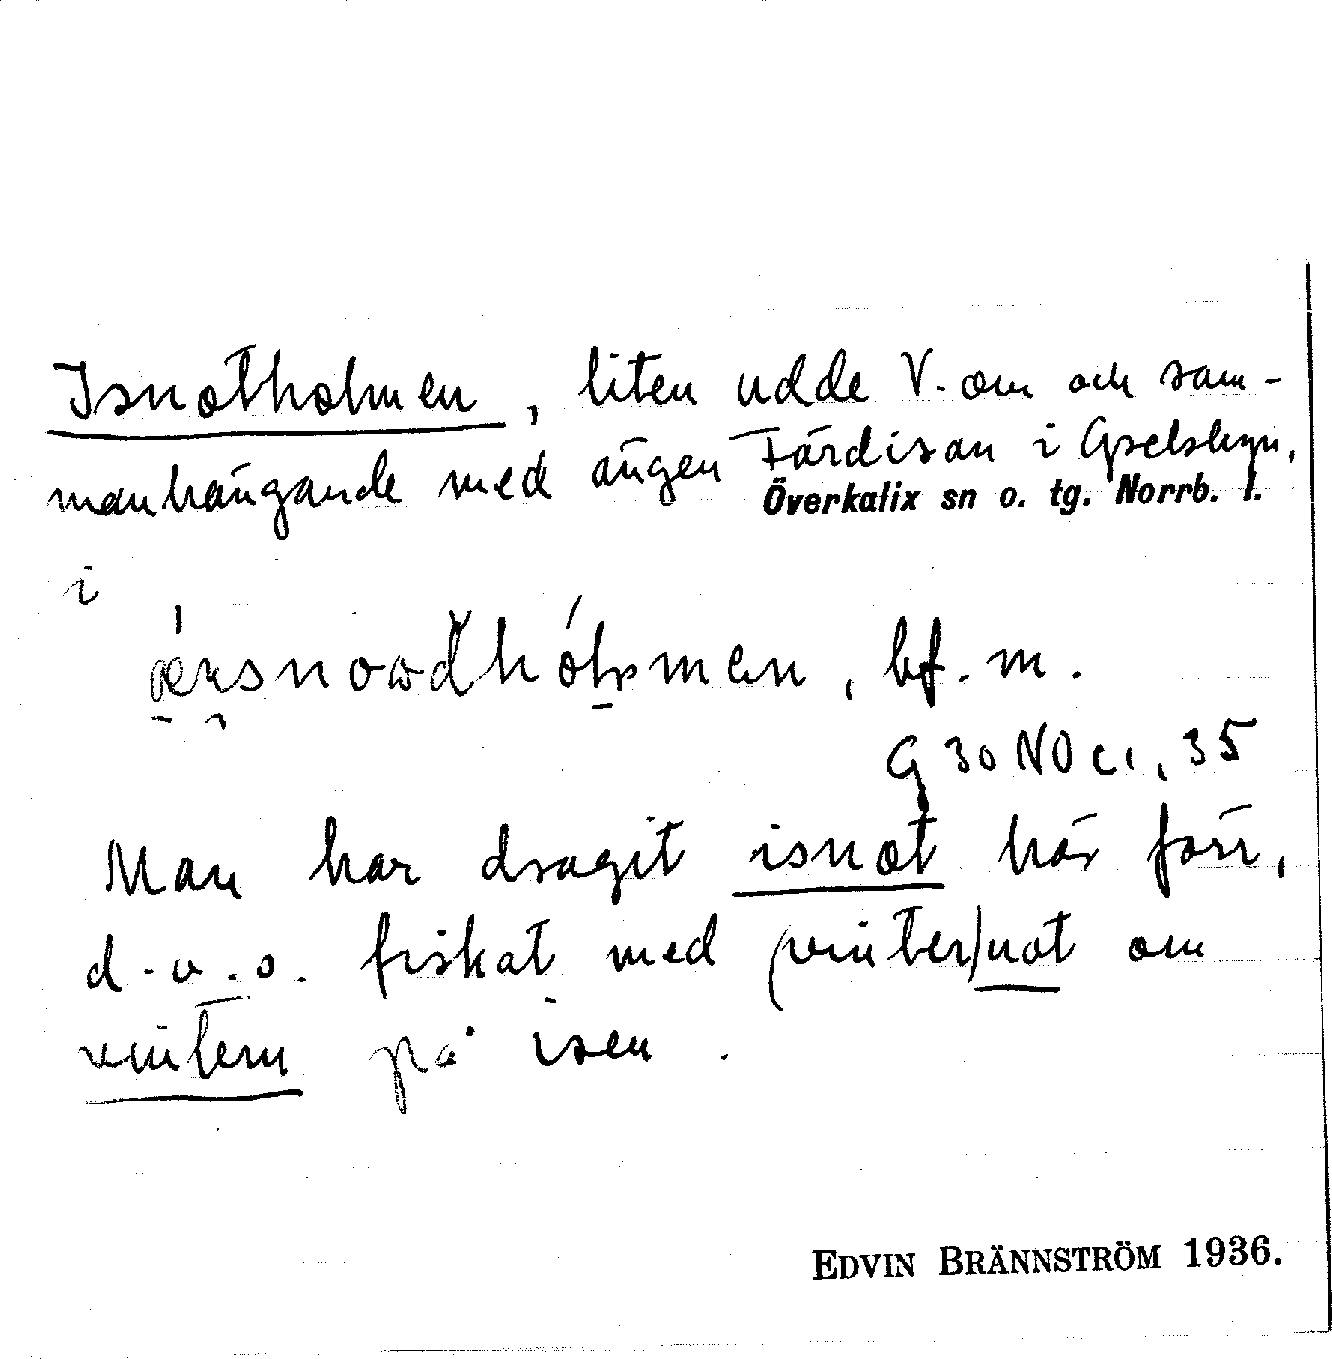 Isnotholmen, liten udde V. om och sam-
manhängande med ängen Färdisan i Gyelsbyn,
Överkalix sn o. tg. Norrb. l.
i
bf. m.
G 30 NO c1, 35
Man har dragit isnot här förr,
d.v.s. fiskat med (vinter)not om
vintern på isen.
EDVIN BRÄNNSTRÖM 1936.